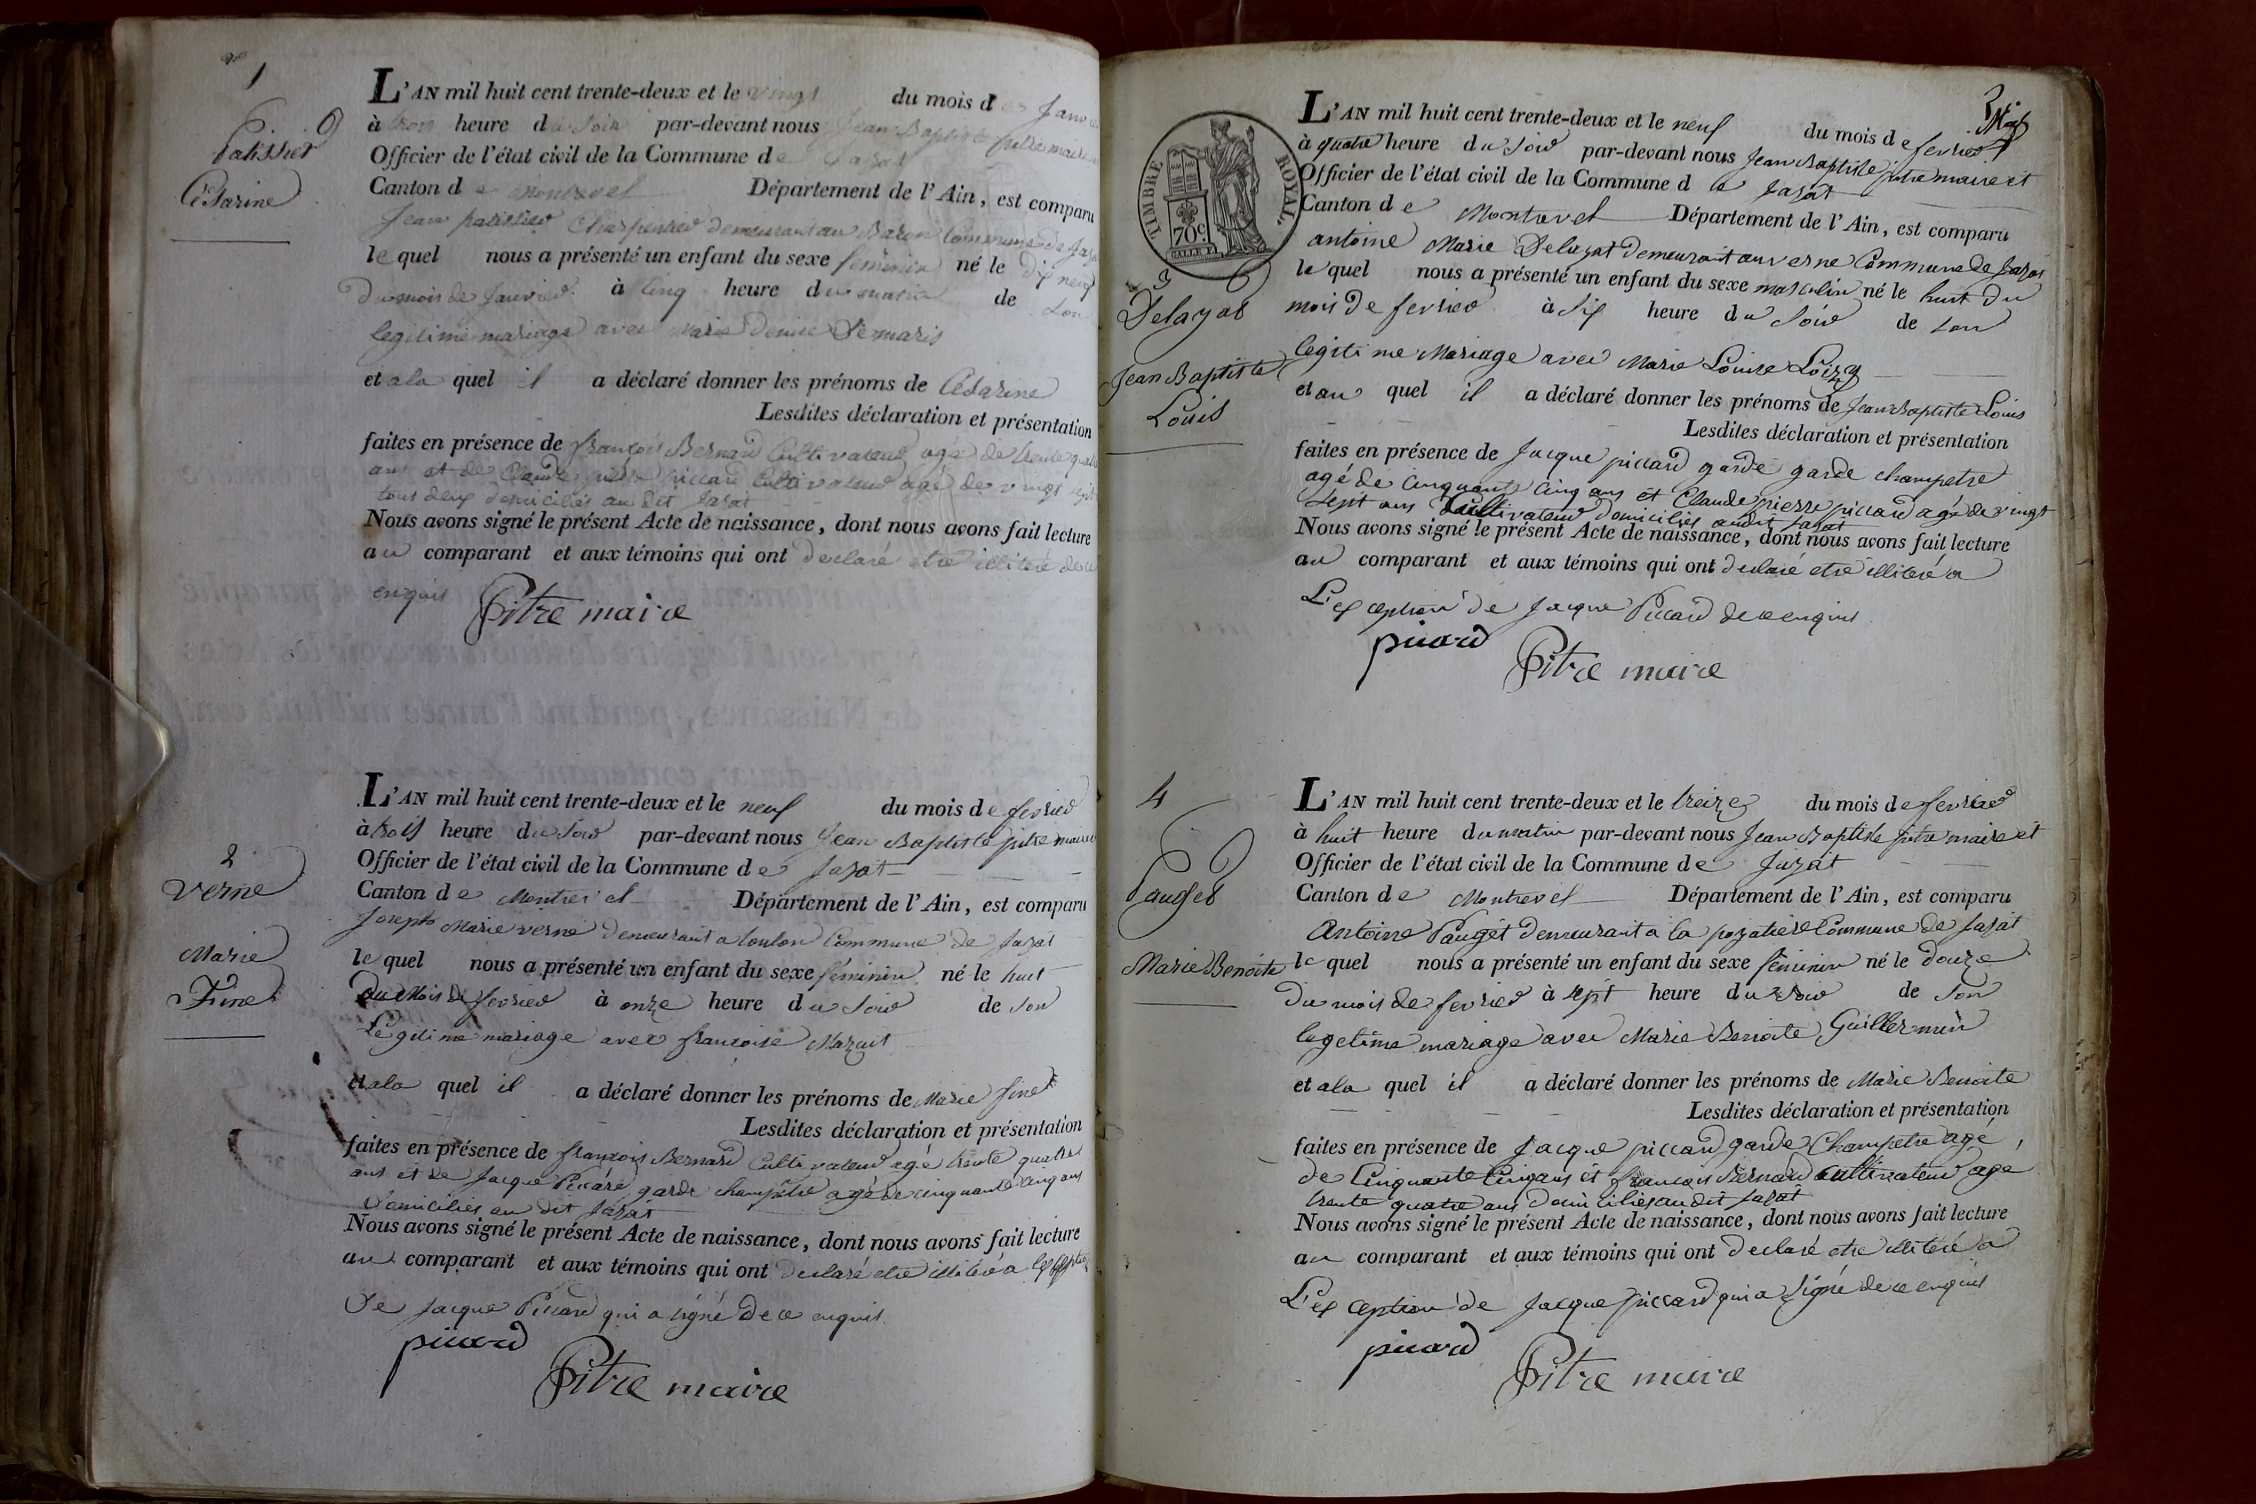 1
Patissier
Césarine
L'AN mil huit cent trente-deux et le vingt du mois de Janvier
à trois heure du soir par-devant nous Jean Baptiste pitre maire
Officier de l'état civil de la Commune de Jazat
Canton de Montrevel Département de l'Ain, est comparu
Jean patissier Charpentier demeurant au Baron Commune de Jazat
le quel nous a présenté un enfant du sexe feminin né le dix neuf
du mois de Janvier à cinq heure du matin de son
legitime mariage avec Marie Denise Demaris
et a la quel il a déclaré donner les prénoms de Césarine
Lesdites déclaration et présentation
faites en présence de françois Bernard Cultivateur agé de trente quatre
ans et de Claude pierre piccard Cultivateur agé de vingt sept
tous deux domiciliés au dit Jazat
Nous avons signé le présent Acte de naissance, dont nous avons fait lecture
au comparant et aux témoins qui ont declaré etre illiteré de ce
enquis
Pitre maire
2
Verne
Marie
Fine
L'AN mil huit cent trente-deux et le neuf du mois de fevrier
à trois heure du soir par-devant nous Jean Baptiste pitre maire
Officier de l'état civil de la Commune de Jazat
Canton de Montrevel Département de l'Ain, est comparu
Joseph Marie verne demeurant a toulon Commune de Jazat
le quel nous a présenté un enfant du sexe féminin né le huit
du mois de fevrier à onze heure du soir de son
Legitime mariage avec françoise Mazuit
et a la quel il a déclaré donner les prénoms de Marie fine
Lesdites déclaration et présentation
faites en présence de françois Bernard Cultivateur agé trente quatre
ans et de Jacque Piccard garde champêtre agé de cinquante cinq ans
domiciliés au dit Jazat
Nous avons signé le présent Acte de naissance, dont nous avons fait lecture
au comparant et aux témoins qui ont declaré etre illiteré a l'exception
De Jacque Piccard qui a signé de ce enquis
picard
Pitre maire
TIMBRE ROYAL
70 c
3
Delayat
Jean Baptiste
Louis
L'AN mil huit cent trente-deux et le neuf du mois de fevrier
à quatre heure du soir par-devant nous Jean Baptiste pitre maire et
Officier de l'état civil de la Commune de Jazat
Canton de Montrevel Département de l'Ain, est comparu
antoine Marie Delayat demeurant au verne Commune de Jazat
le quel nous a présenté un enfant du sexe masculin né le huit du
mois de fevrier à six heure du soir de son
legitime Mariage avec Marie Louise Loizy
et au quel il a déclaré donner les prénoms de Jean Baptiste Louis
Lesdites déclaration et présentation
faites en présence de Jacque piccard garde garde champetre
agé de cinquante cinq ans et Claude pierre piccard agé de vingt
sept ans Cultivateur domiciliés audit Jazat
Nous avons signé le présent Acte de naissance, dont nous avons fait lecture
au comparant et aux témoins qui ont declaré etre illiteré a
L'exception de Jacque Piccard de ce enquis
picard
Pitre maire
4
Pauget
Marie Benoite
L'AN mil huit cent trente-deux et le treize du mois de fevrier
à huit heure du matin par-devant nous Jean Baptiste pitre maire et
Officier de l'état civil de la Commune de Jazat
Canton de Montrevel Département de l'Ain, est comparu
Antoine Pauget demeurant a la pozatiere Commune de Jazat
le quel nous a présenté un enfant du sexe féminin né le douze
du mois de fevrier à sept heure du soir de son
legetime mariage avec Marie Benoite Guillermin
et a la quel il a déclaré donner les prénoms de Marie Benoite
Lesdites déclaration et présentation
faites en présence de Jacque piccard garde Champetre agé
de Cinquante Cinq ans et françois Bernard cultivateur agé
trente quatre ans domiciliés au dit Jazat
Nous avons signé le présent Acte de naissance, dont nous avons fait lecture
au comparant et aux témoins qui ont declaré etre illiteré a
L'exception de Jacque piccard qui a signé de ce enquis
picard
Pitre maire